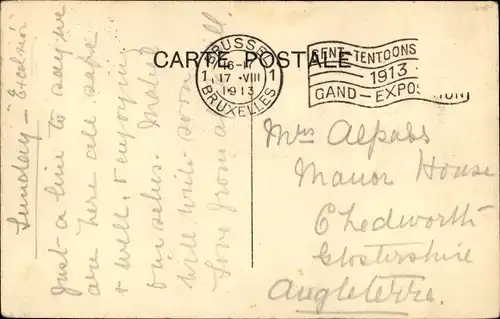 CARTE POSTALE
BRUSSEL
1 17-VIII 1
1913
BRUXELLES
GENT-TENTOONS
1913
GAND-EXPOSITION
Sunday - Excelsior
Just a line to say we
are here all safe
& well, & enjoying
ourselves.
will write soon
Love from all
Mrs
Manor House
Chedworth
Glostershire
Angleterre.